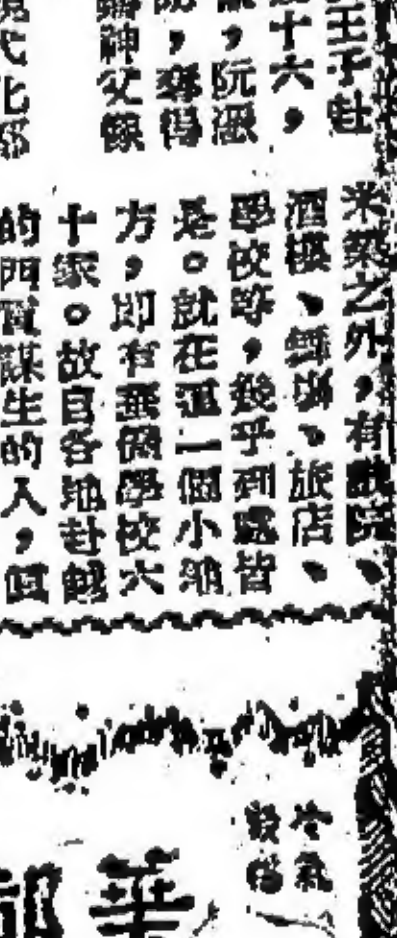 王子赴
十六，
，阮
，奪得
神父
化
米業之外，有戲院、
酒樓、舞場、旅店、
學校等，幾乎到處皆
是。就在這一個小地
方，即有華僑學校六
十家。故自各地赴
的謀生的人，
冷氣
設備
華